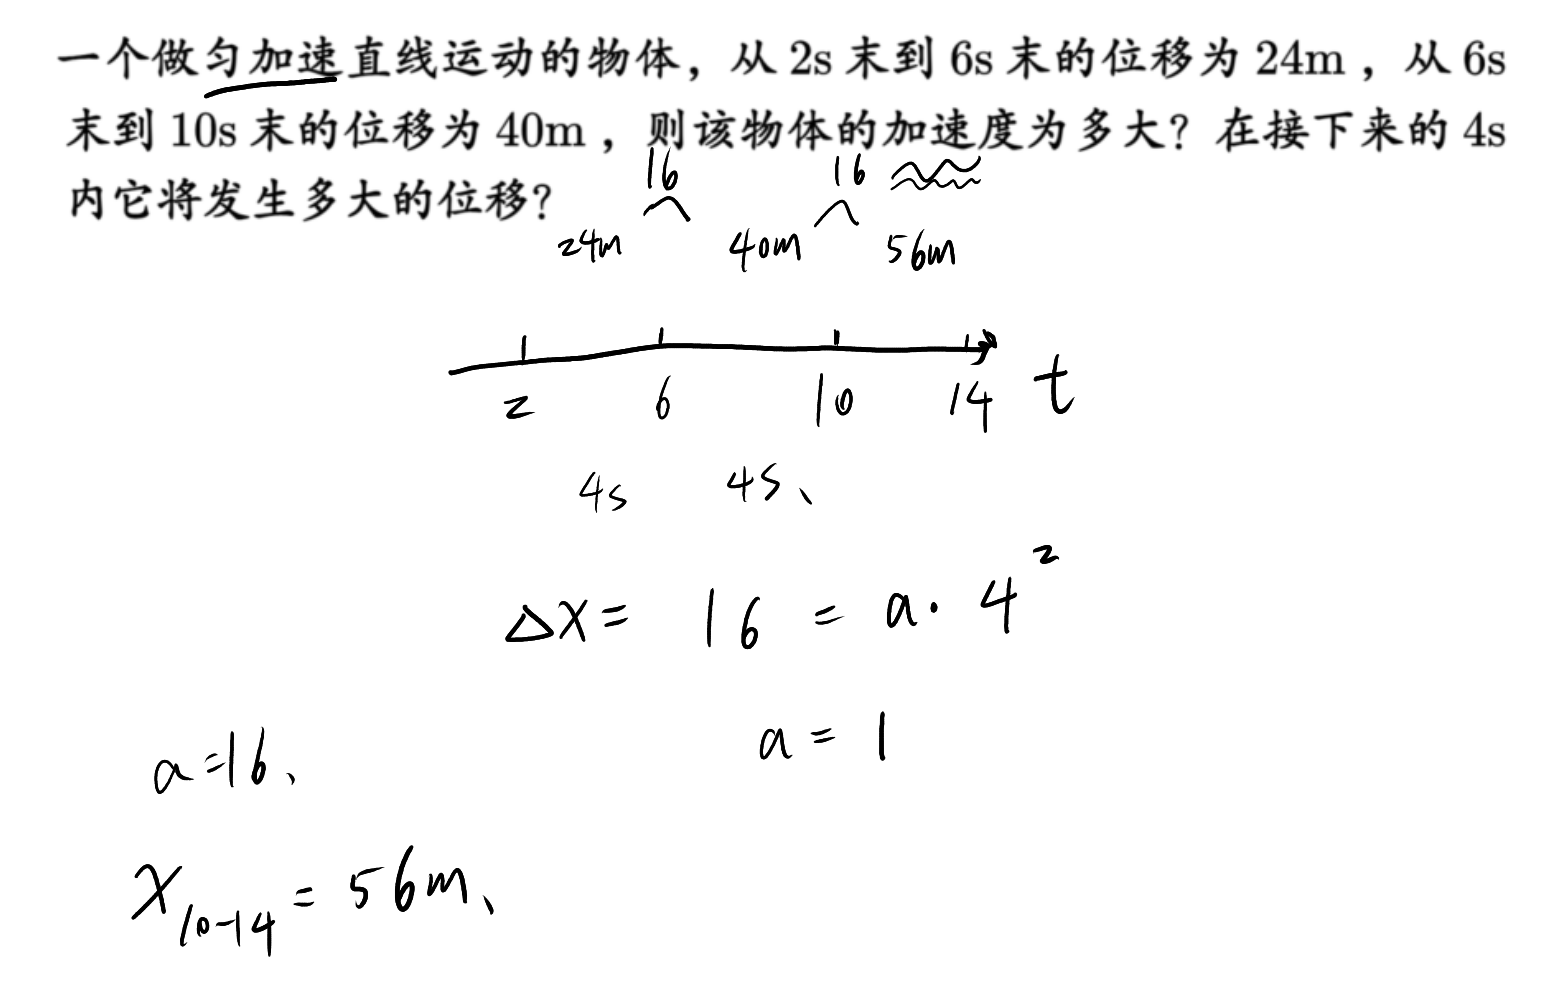 一个做匀加速直线运动的物体，从 2s 末到 6s 末的位移为 24m ，从 6s
末到 10s 末的位移为 40m ，则该物体的加速度为多大？在接下来的 4s
内它将发生多大的位移？
16 16
24m 40m 56m
2 6 10 14 t
4s 4s、
Δx = 16 = a · 4²
a = 1
a=16、
x₁₀₋₁₄ = 56m、